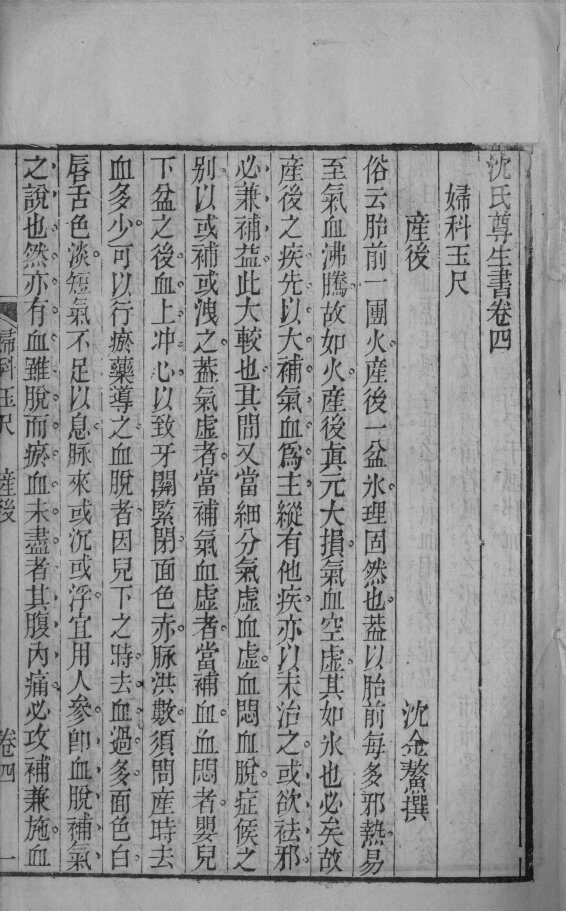 沈氏尊生書卷四
婦科玉尺
沈金鰲撰
產後
俗云胎前一團火。產後一盆氷。理固然也。葢以胎前每多邪熱。易
至氣血沸騰。故如火。產後眞元大損。氣血空虛。其如氷也必矣。故
產後之疾。先以大補氣血爲主。縱有他疾。亦以末治之。或欲祛邪。
必兼補益。此大較也。其間又當細分氣虛血虛血悶血脫症候之
别。以或補或洩之。葢氣虛者當補氣。血虛者當補血。血悶者。嬰兒
下盆之後。血上冲心。以致牙關緊閉。面色赤。脉洪數。須問產時去
血多少。可以行瘀藥導之。血脫者。因兒下之時。去血過多。面色白。
唇舌色淡。短氣不足以息。脉來或沉或浮。宜用人參。卽血脫補氣
之說也。然亦有血雖脫而瘀血未盡者。其腹內痛。必攻補兼施。血
婦科玉尺 產後 卷四 一